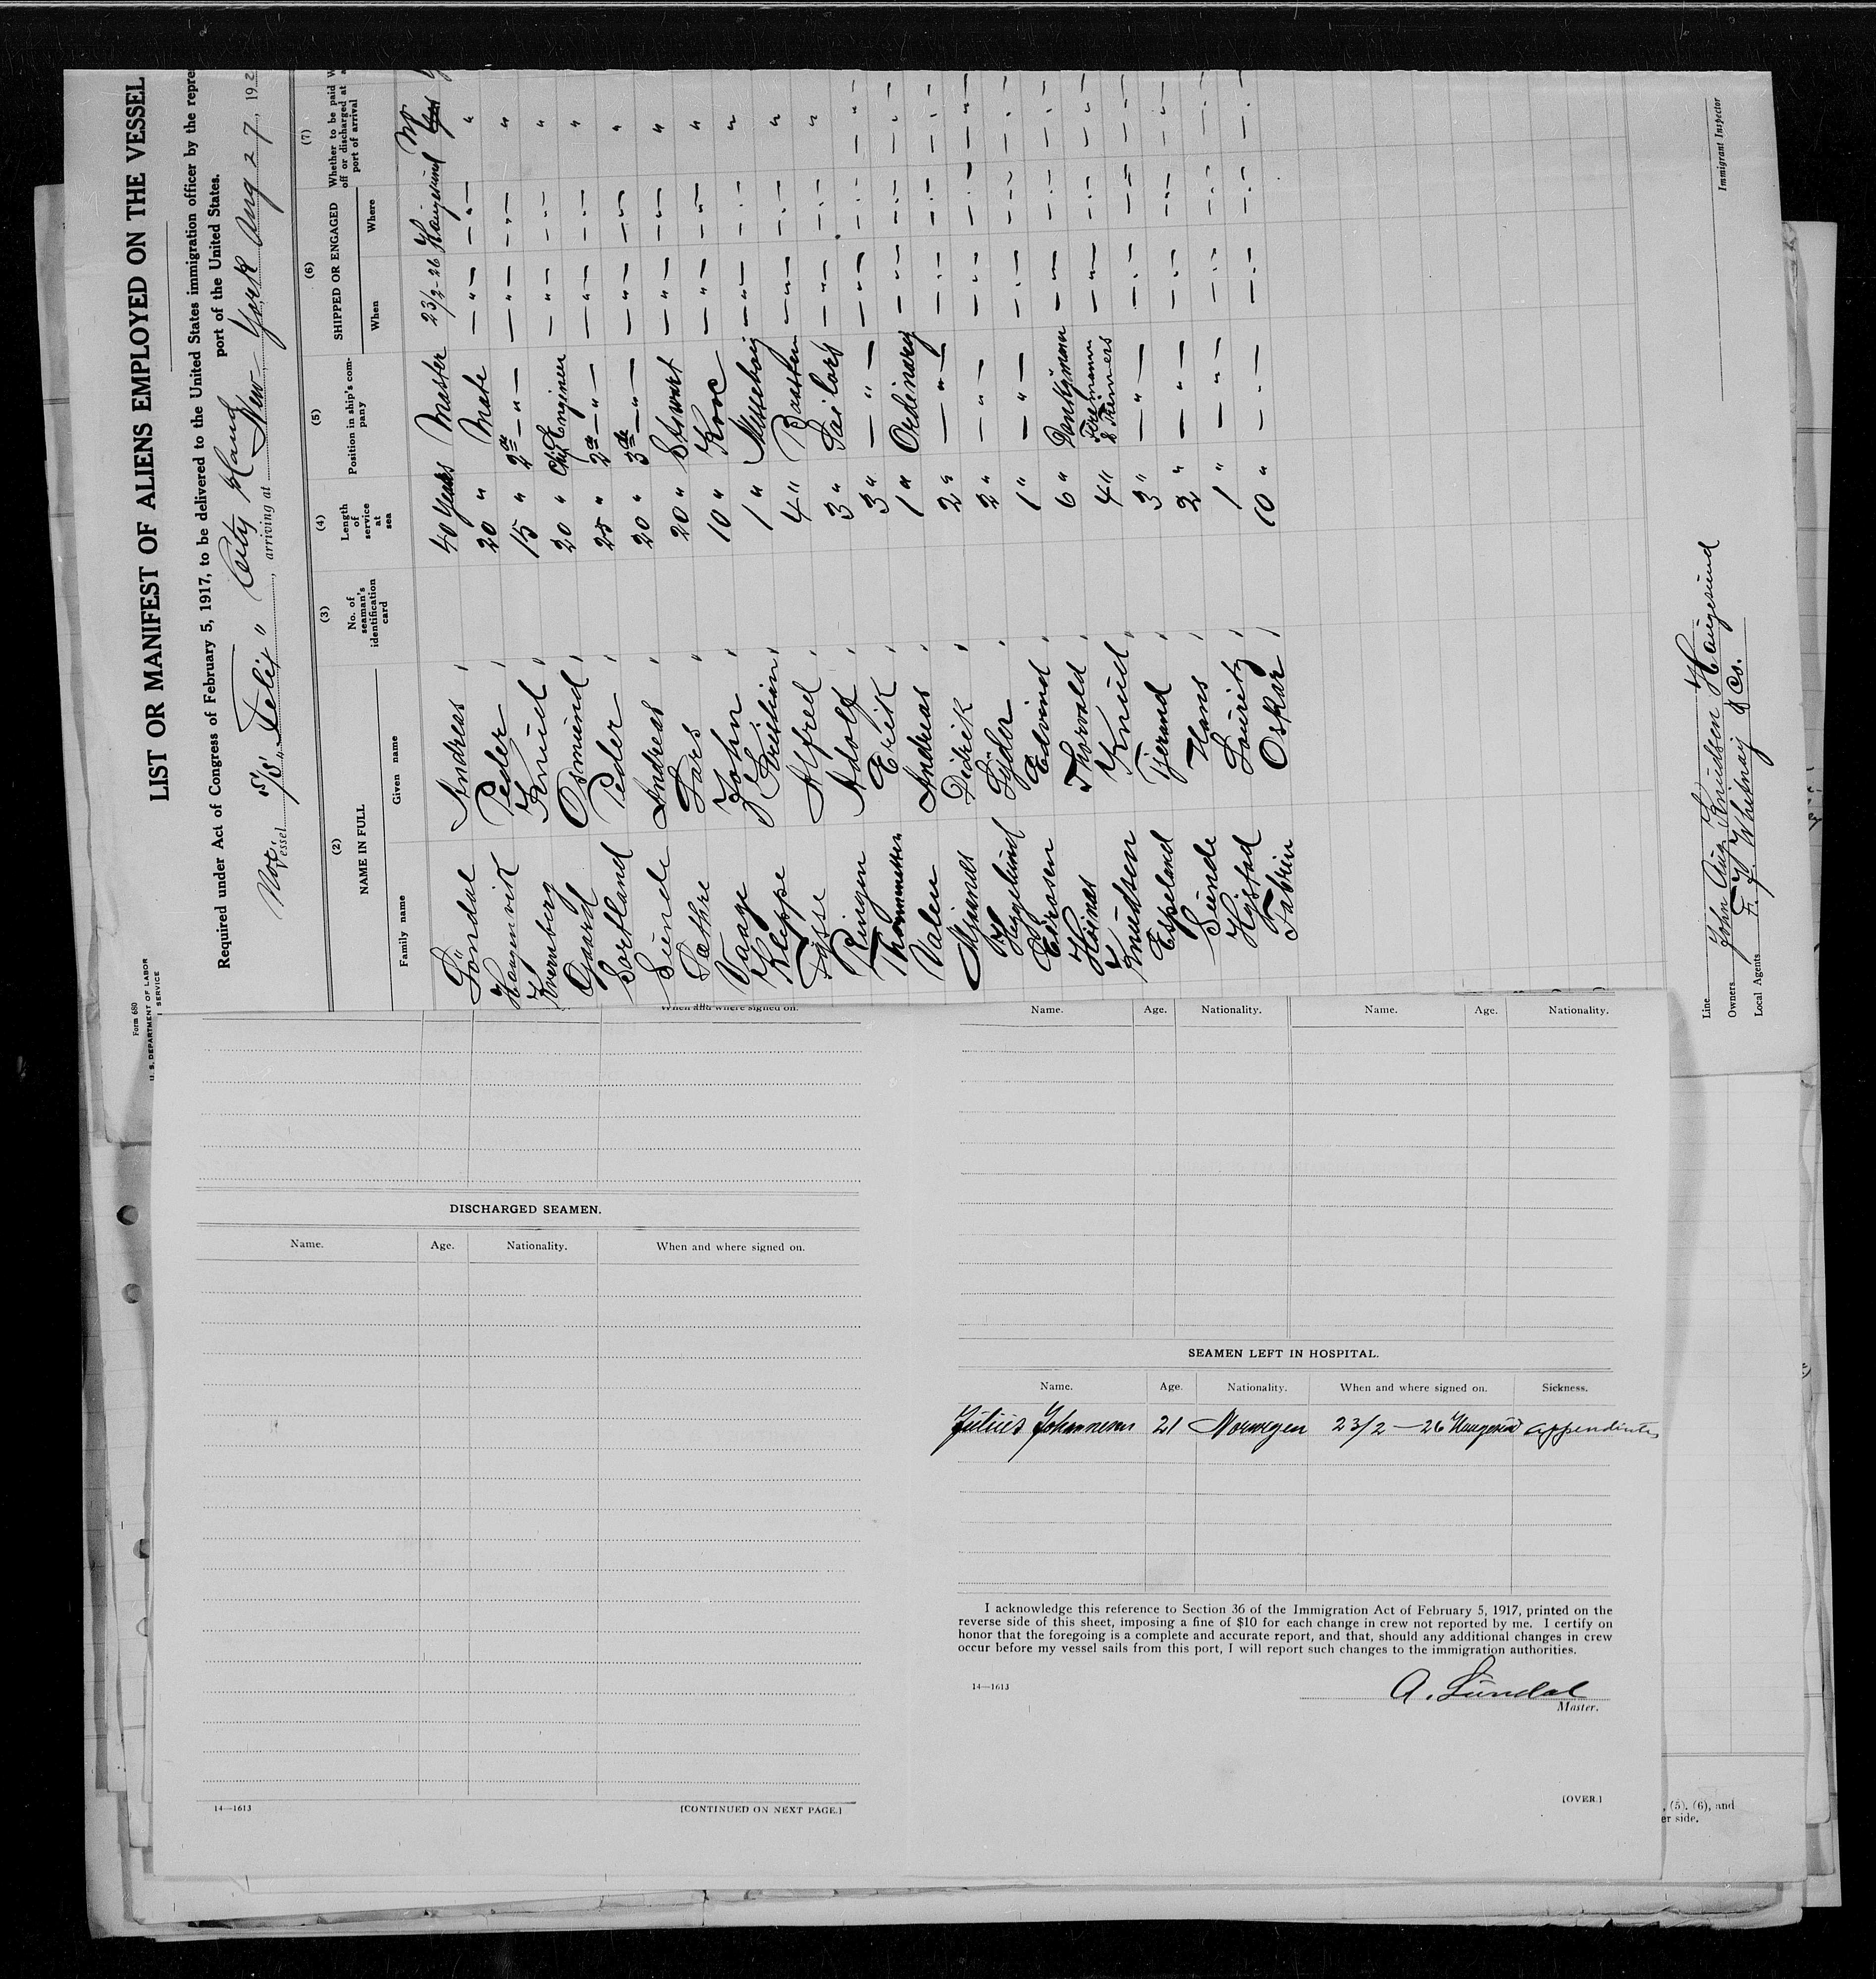 Form 680
U. S. DEPARTMENT OF LABOR
SERVICE
LIST OR MANIFEST OF ALIENS EMPLOYED ON THE VESSEL
Required under Act of Congress of February 5, 1917, to be delivered to the United States immigration officer by the repre
port of the United States.
Vessel S/S "Felix", arriving at New-York Aug 27, 192
(2) (3) (4) (5) (6) (7)
NAME IN FULL
Family name Given name
No. of seaman's identification card
Length of service at sea
Position in ship's company
SHIPPED OR ENGAGED
When Where
Whether to be paid off or discharged at port of arrival
Andreas 40 years Master 23/2-26 Haugesund No
Haugenvik Peder 20 " Mate — " — — " — "
Knud 15 " 2nd — " — — " — — " — "
Osmund 20 " Chief Engineer — " — — " — "
Sortland Peder 25 " 2nd — " — — " — — " — "
Sunde Andreas 20 " 3rd — " — — " — — " — "
Lars 20 " Stewart — " — — " — "
Vaage John 10 " Kock — " — — " — "
Kleppe Kristian 1 " Messeboy — " — — " — "
Tysse Alfred 4 " — " — — " — "
Ringen Adolf 3 " Sailors — " — — " — — " —
Erik 3 " — " — — " — — " — — " —
Valen Andreas 1 " Ordinary — " — — " — — " —
Didrik 2 " — " — — " — — " — — " —
Heggelund 2 " — " — — " — — " — — " —
Edvind 1 " — " — — " — — " — — " —
Thorvald 6 " Donkeyman — " — — " — — " —
Knudsen Knud 4 " Firemann & Trimers — " — — " — — " —
Espeland Tjerand 3 " — " — — " — — " — — " —
Sunde Hans 2 " — " — — " — — " — — " —
Lauritz 1 " — " — — " — — " — — " —
Oskar 10 " — " — — " — — " — — " —
Line
Owners John Knudsen Haugesund
Local Agents & Co.
Immigrant Inspector
When and where signed on.
DISCHARGED SEAMEN.
Name. Age. Nationality. When and where signed on.
14—1613
[CONTINUED ON NEXT PAGE.]
Name. Age. Nationality. Name. Age. Nationality.
SEAMEN LEFT IN HOSPITAL.
Name. Age. Nationality. When and where signed on. Sickness.
Julius Johannesen 21 Norwegen 23/2—26 Haugesund
I acknowledge this reference to Section 36 of the Immigration Act of February 5, 1917, printed on the
reverse side of this sheet, imposing a fine of $10 for each change in crew not reported by me. I certify on
honor that the foregoing is a complete and accurate report, and that, should any additional changes in crew
occur before my vessel sails from this port, I will report such changes to the immigration authorities.
14—1613
A. Lündal
Master.
[OVER.]
, (5). (6), and
er side.